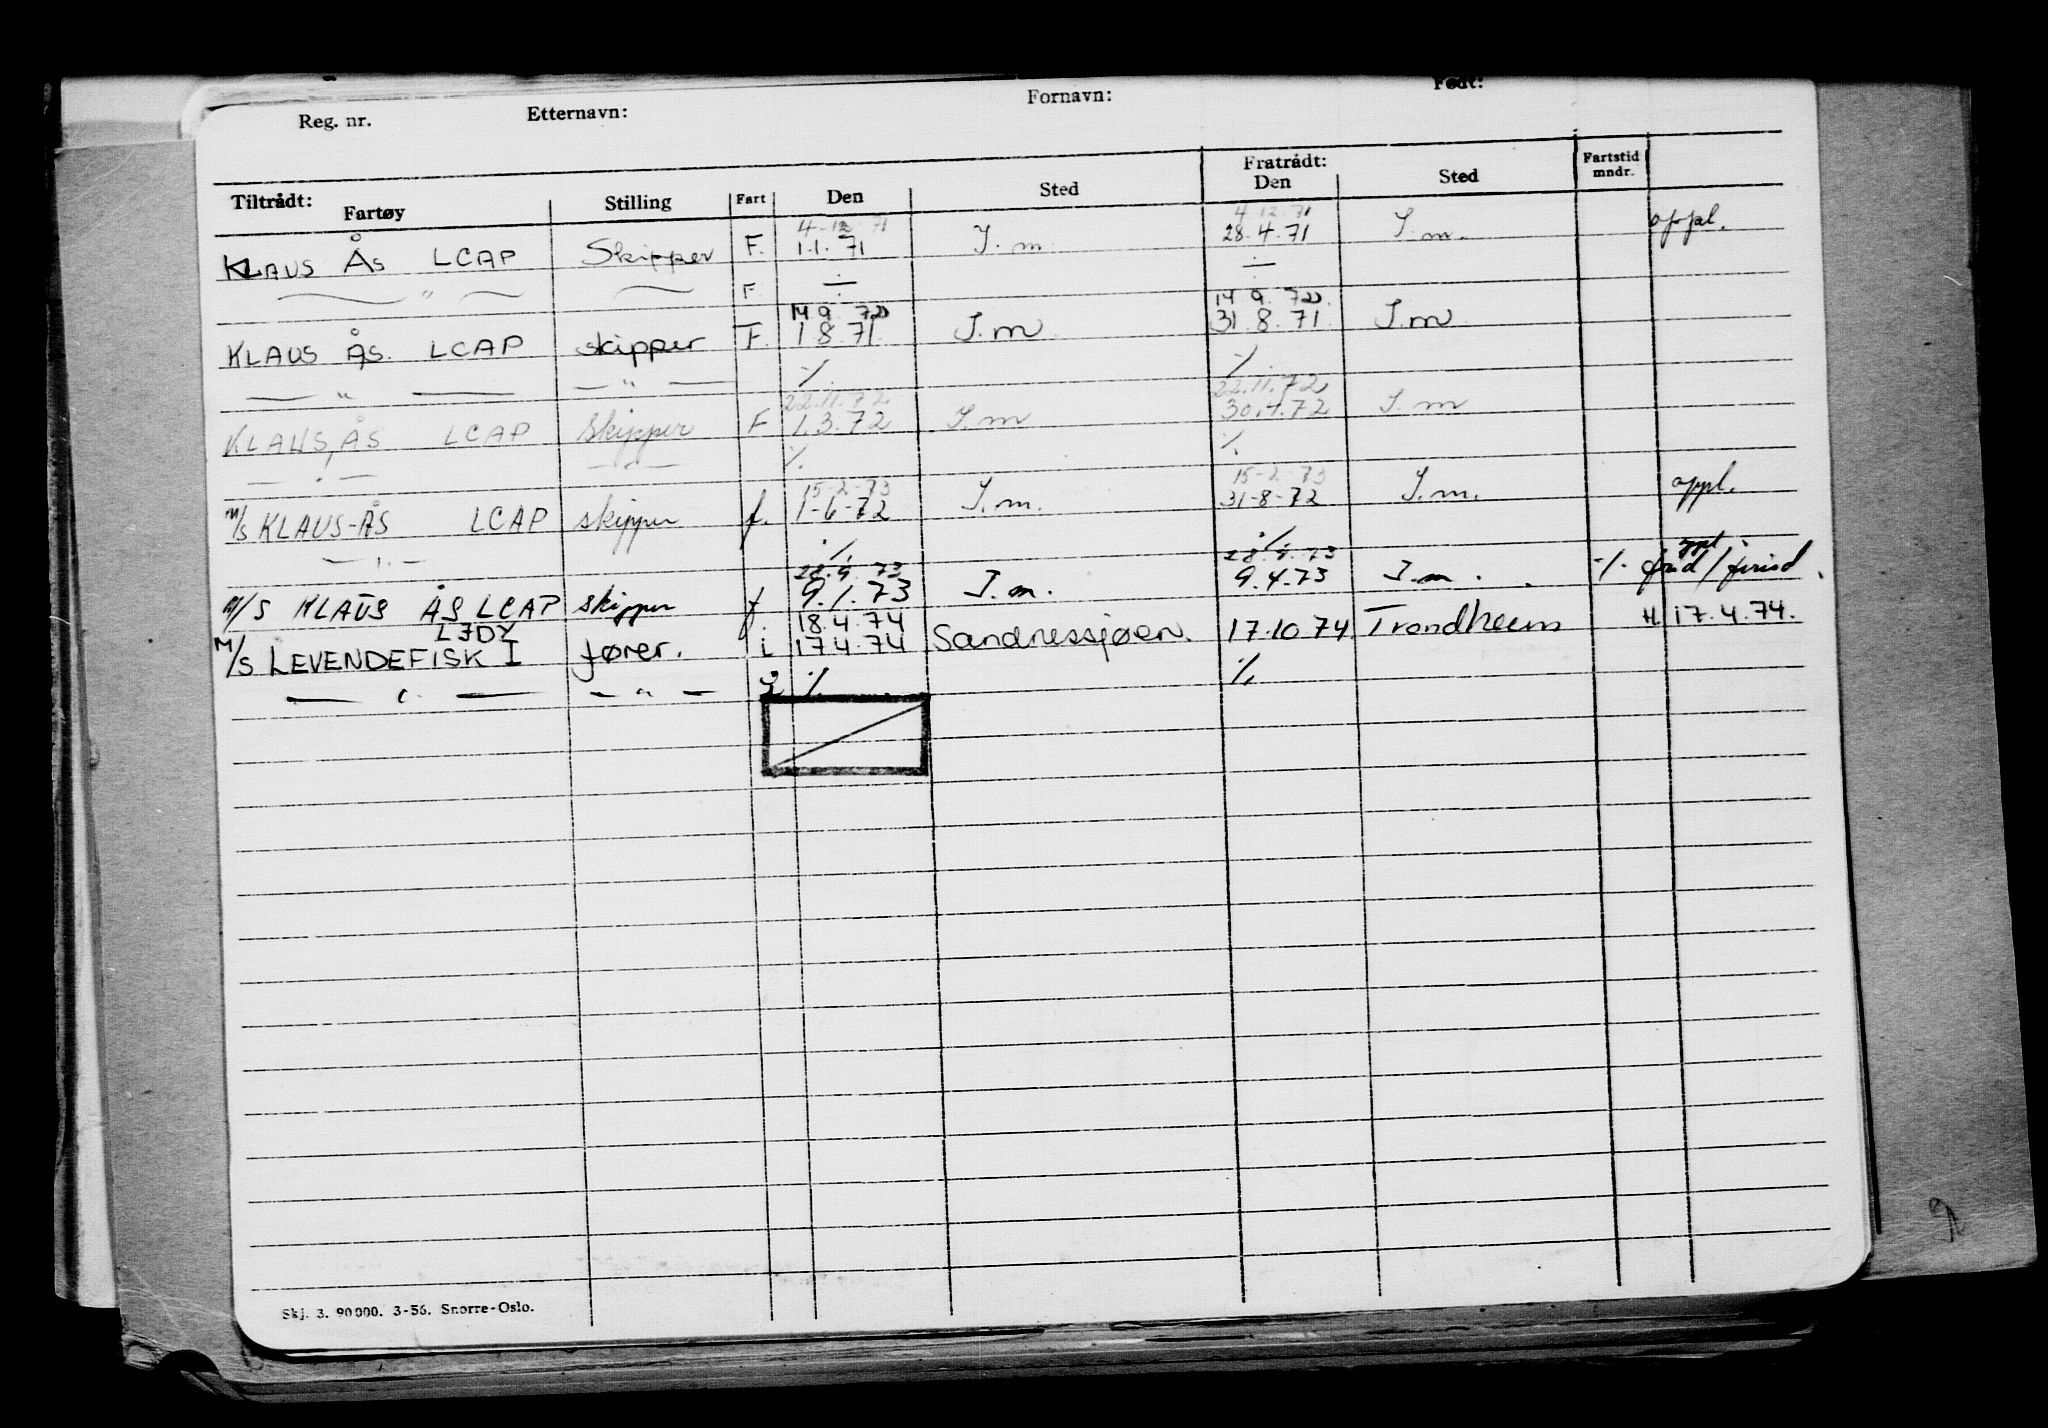 Reg. nr. Etternavn: Fornavn: Født:
Tiltrådt: Fratrådt:
Fartøy Stilling Fart Den Sted Den Sted Fartstid mndr.
4-12-71 4.12.71
KLAUS ÅS LCAP Skipper F. 1.1.71 I.m. 28.4.71 I.m. oppl.
— " — — F ÷ ÷
14 9. 72 14 9. 72.
KLAUS ÅS. LCAP skipper F. 1.8.71. I.m. 31.8.71. I.m
— " — — " — ·/. ·/.
22.11.72 22.11.72
KLAUS ÅS LCAP Skipper F 1.3.72 I.m 30.4.72 I.m
— " — — " — ·/. ·/.
15-2-73 15-2-73
M/S KLAUS-ÅS LCAP skipper f. 1-6-72 I.m. 31-8-72 I.m. oppl.
— " — ·/. ·/.
28.9.73 28.9.73
M/S KLAUS ÅS LCAP skipper f. 9.1.73 I.m. 9.4.73 I.m. -/.
LJDZ 18.4.74
M/S LEVENDEFISK I fører. i 17.4.74 Sandnessjøen. 17.10.74 Trondheim H 17.4.74.
— " — — " — ·/. ·/.
Skj. 3. 90000. 3-56. Snorre-Oslo.